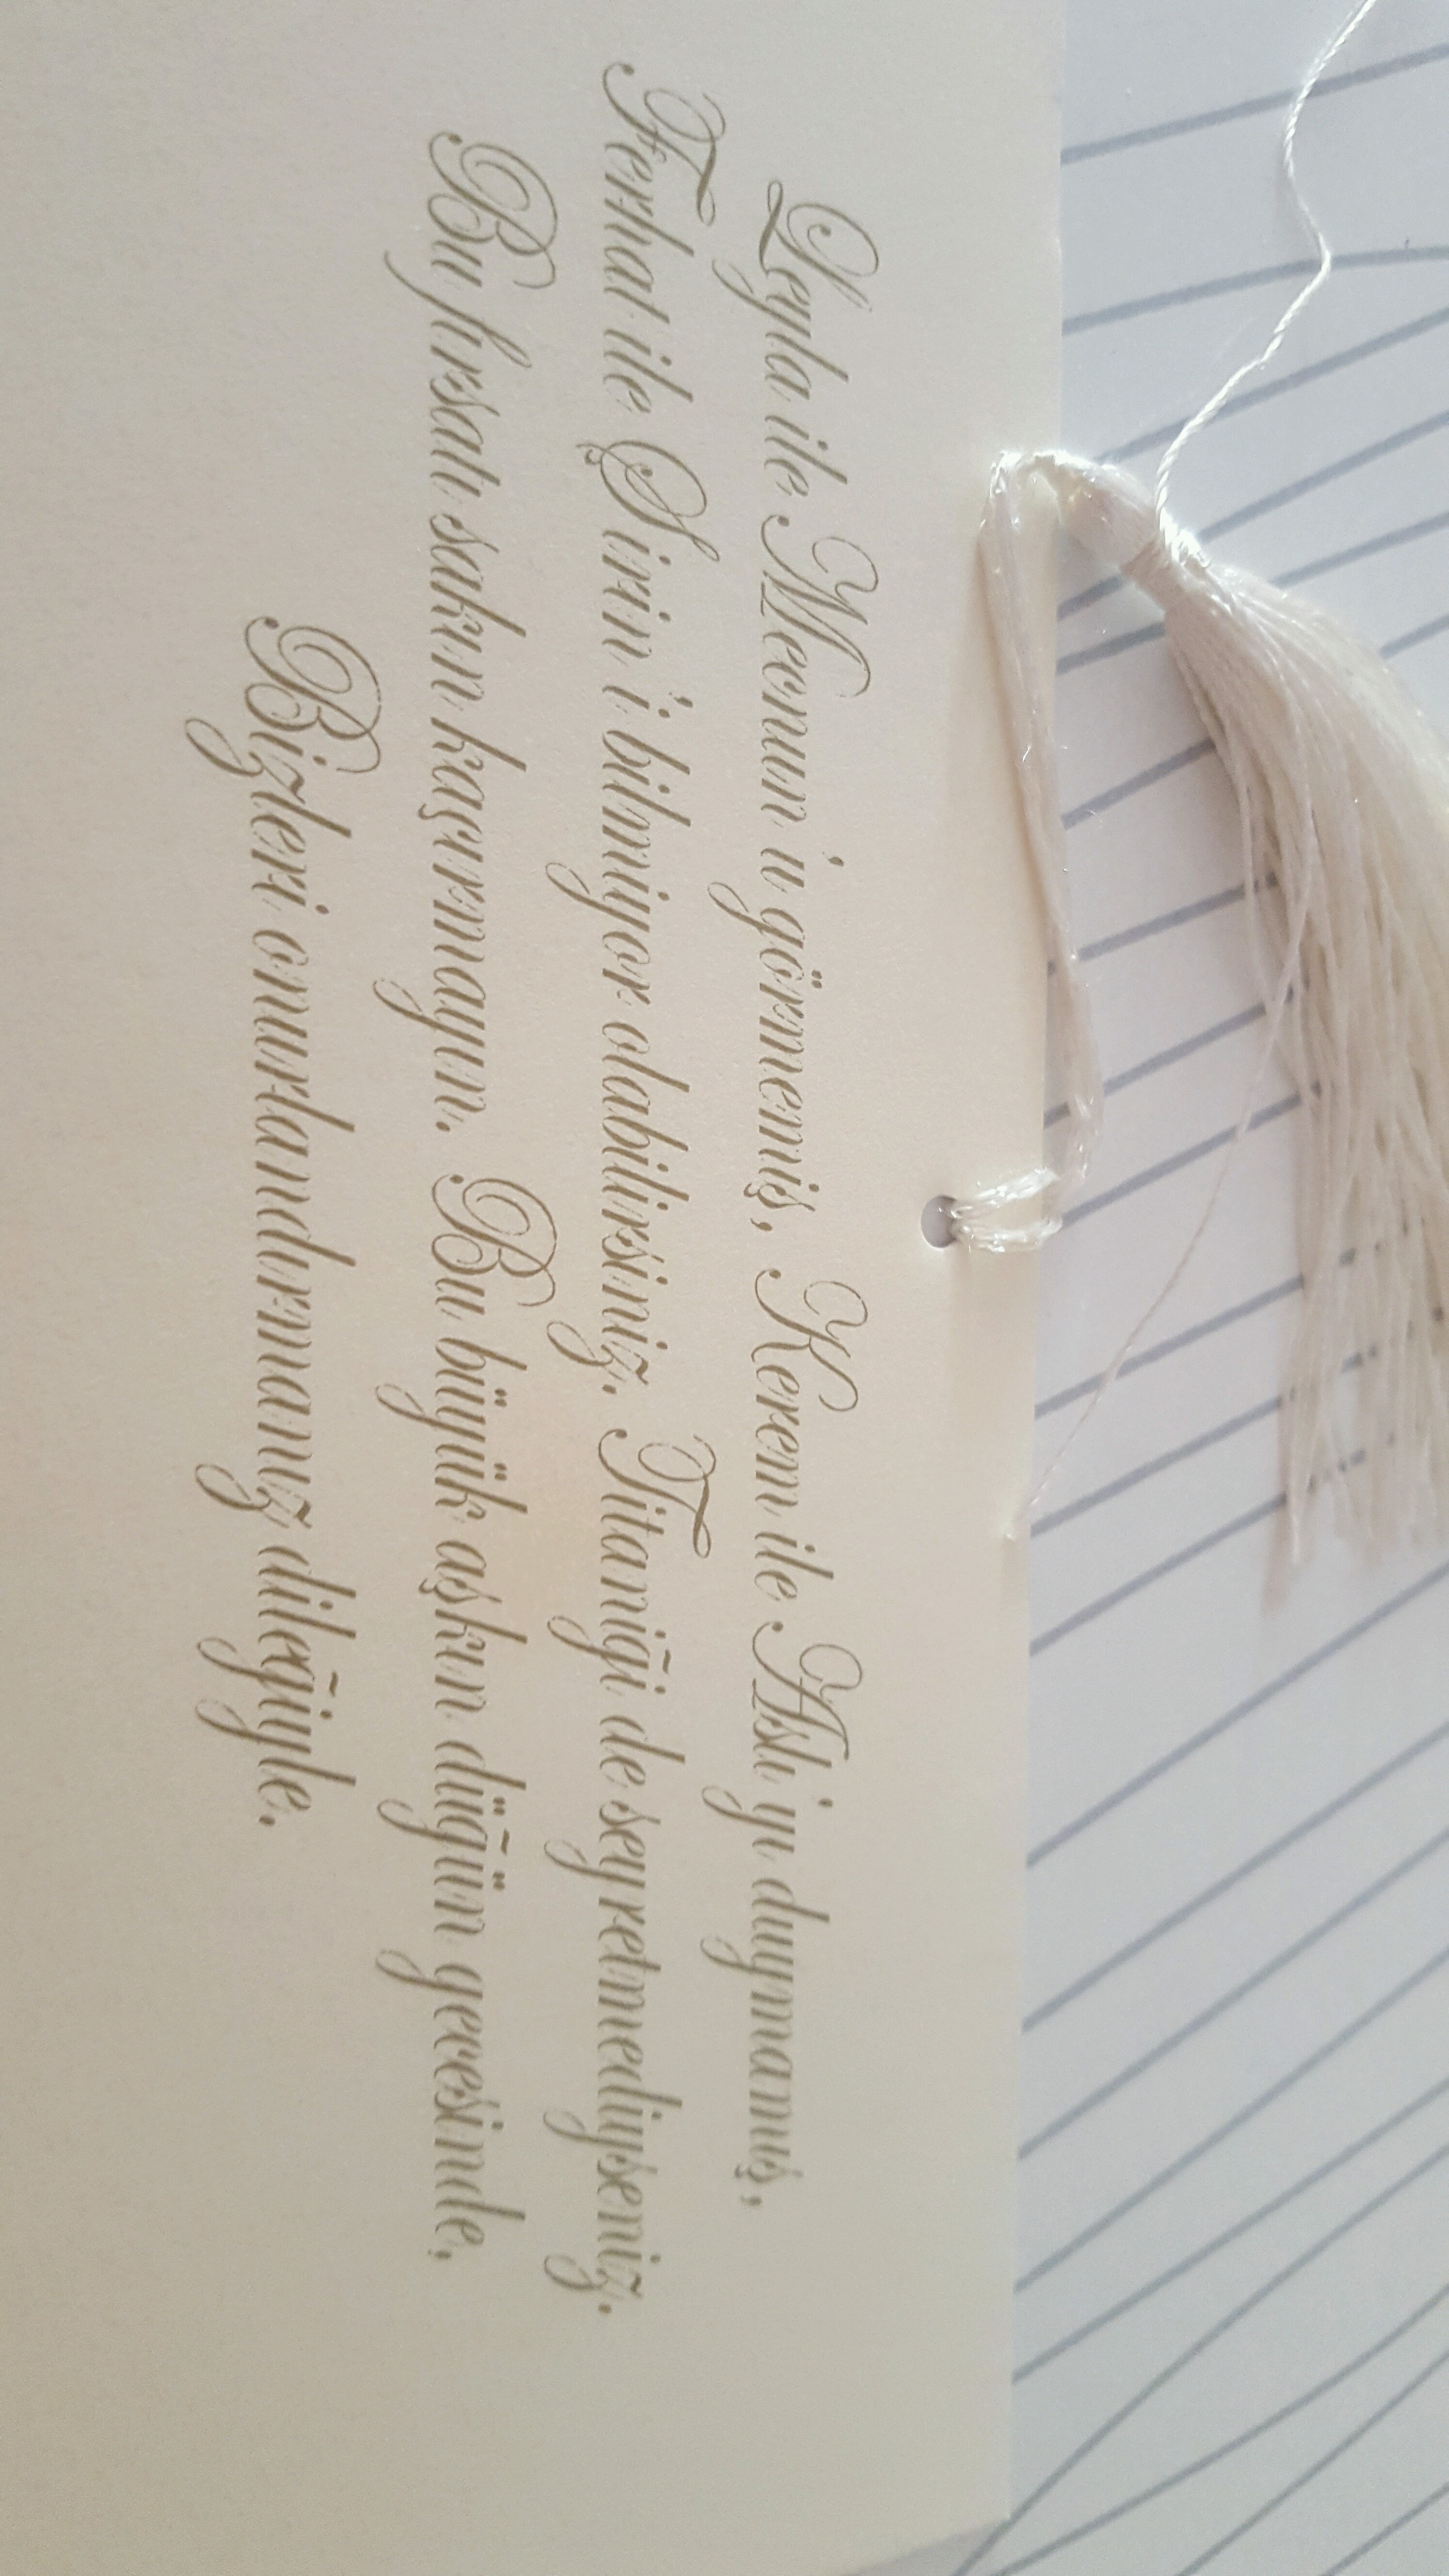 Leyla ile Mecnun'u görmemiş, Kerem ile Aslı'yı duymamış,
Ferhat ile Şirin'i bilmiyor olabilirsiniz. Titaniği de seyretmediyseniz.
Bu fırsatı sakın kaçırmayın. Bu büyük aşkın düğün gecesinde,
Bizleri onurlandırmanız dileğiyle.